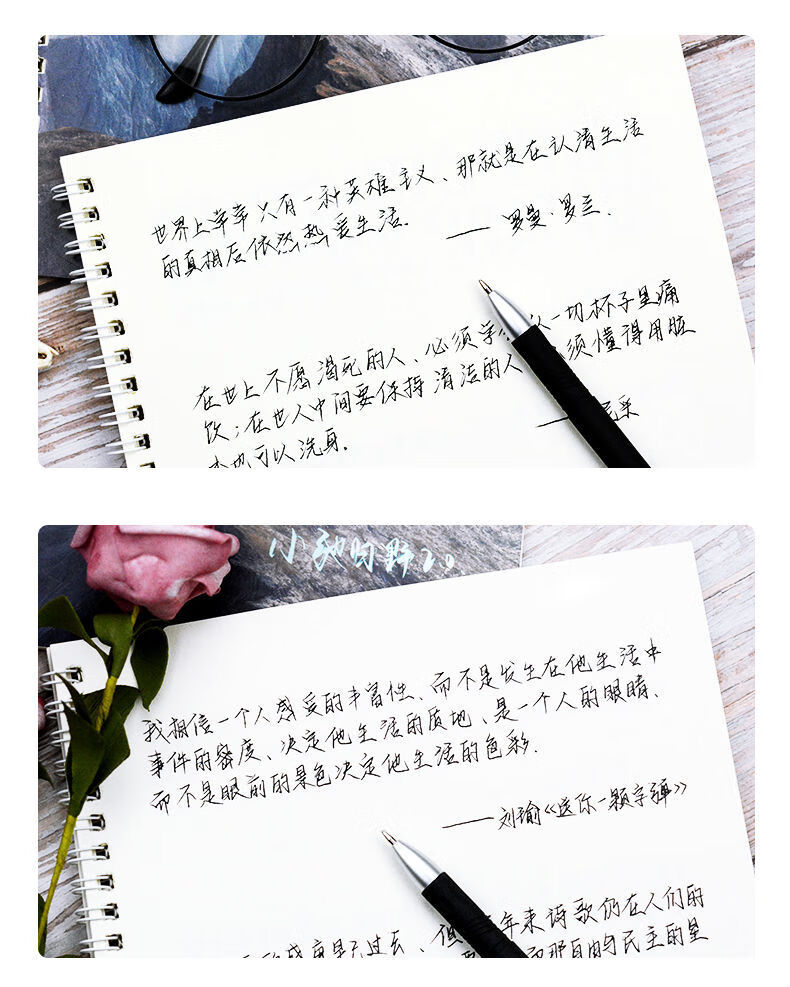 世界上幸幸只有一种英雄主义、那就是在认清生活
的真相后依然热爱生活.
—— 罗曼·罗兰.
在世上不愿渴死的人、必须学 从一切杯子里痛
饮;在世人中间要保持清洁的人 必须懂得用脏
水也可以洗身.
—— 尼采
小驰旷野2.0
我相信一个人感受的丰富性、而不是发生在他生活中
事件的密度、决定他生活的质地、是一个人的眼睛、
而不是眼前的景色决定他生活的色彩.
—— 刘瑜《送你一颗子弹》
过去、但 年来诗歌仍在人们的
而那自由与民主的星